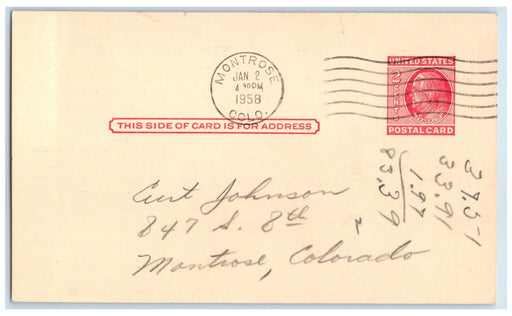 MONTROSE
JAN 2
4 30 PM
1958
COLO.
UNITED STATES
2 CENTS
POSTAL CARD
THIS SIDE OF CARD IS FOR ADDRESS
Curt Johnson
847 S. 8th
Montrose, Colorado
33.91
1.97
83.39